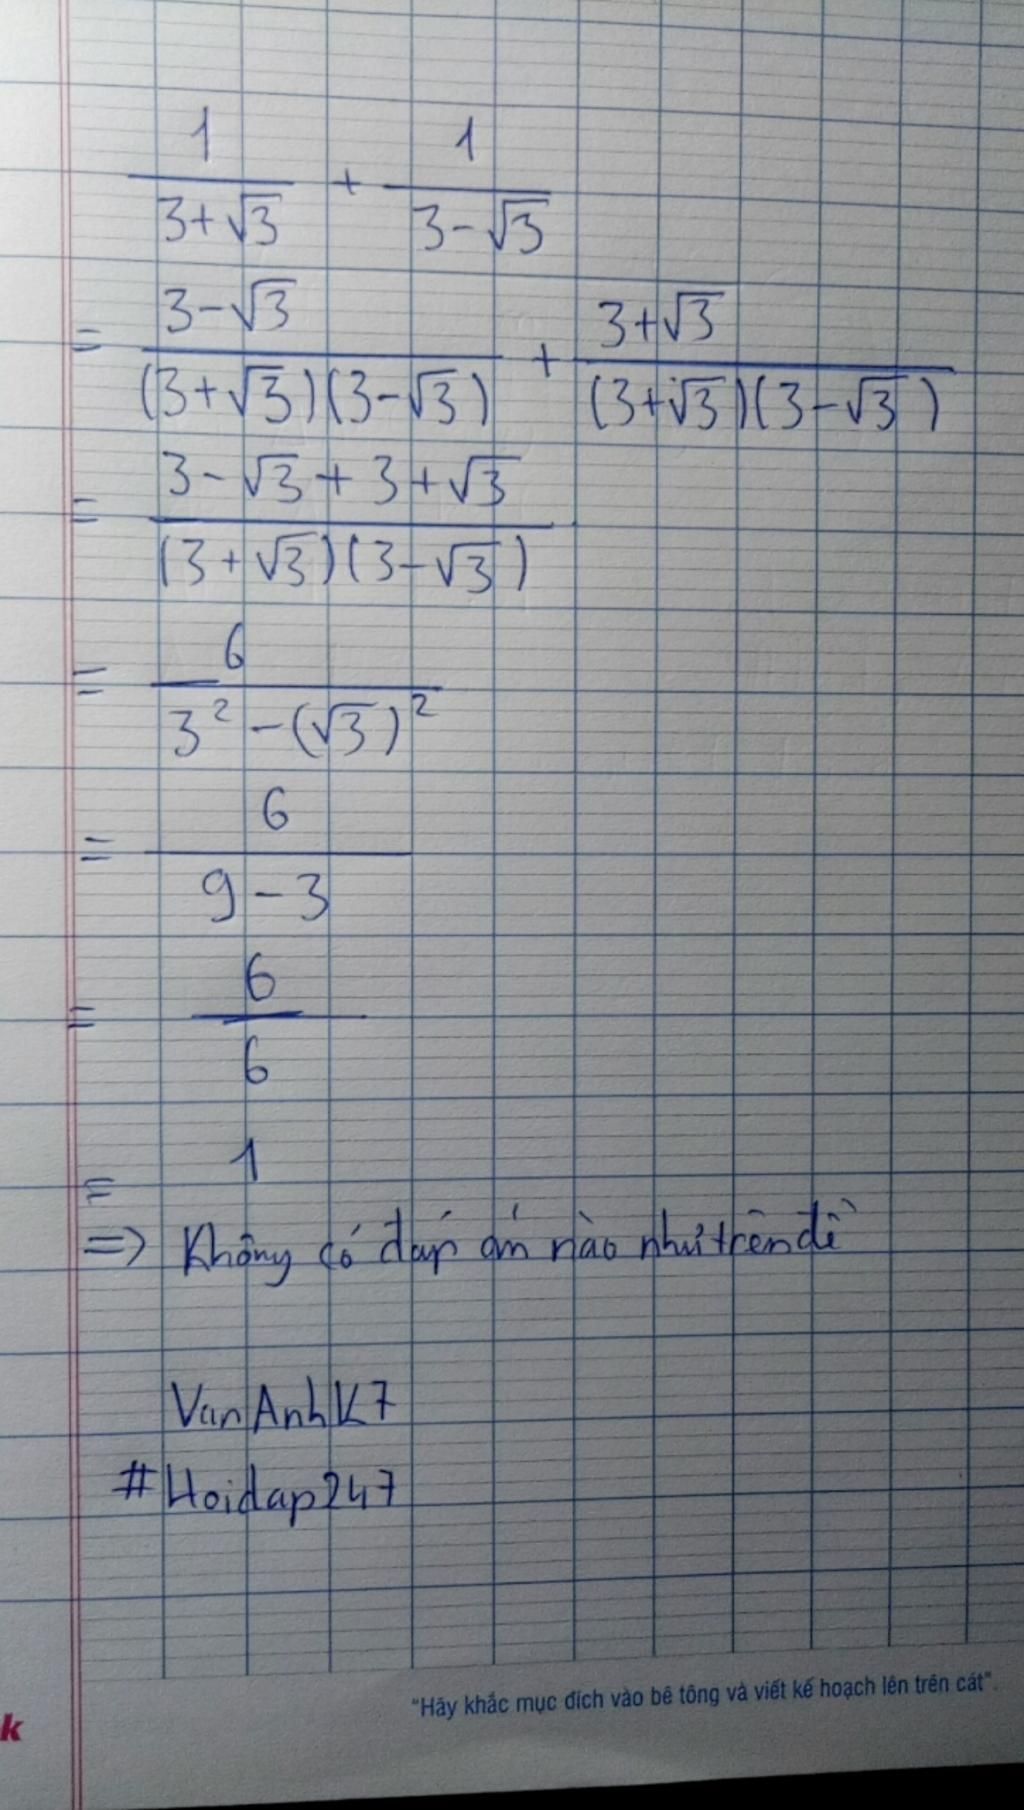 1/(3+√3) + 1/(3-√3)
= (3-√3)/((3+√3)(3-√3)) + (3+√3)/((3+√3)(3-√3))
= (3-√3+3+√3)/((3+√3)(3-√3))
= 6/(3²-(√3)²)
= 6/(9-3)
= 6/6
= 1
=> Không có đáp án nào như trên đề
VanAnhK7
#Hoidap247
"Hãy khắc mục đích vào bê tông và viết kế hoạch lên trên cát".
k